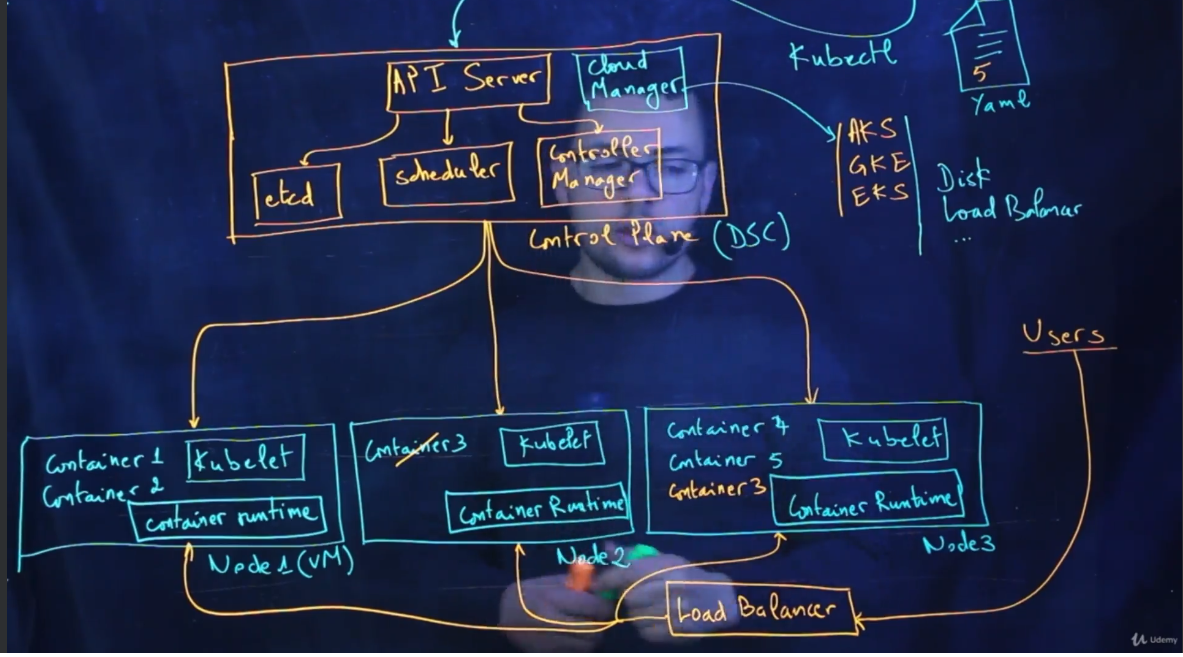 API Server
Cloud
Manager
Kubectl
5
Yaml
etcd
scheduler
Controller
Manager
AKS
GKE
EKS
Disk
Load Balancer
...
Control Plane (DSC)
Users
Container 1
Container 2
Kubelet
container runtime
Node 1 (VM)
Container 3
Kubelet
Container Runtime
Node 2
Container 4
Container 5
Container 3
Kubelet
Container Runtime
Node 3
Load Balancer
Udemy